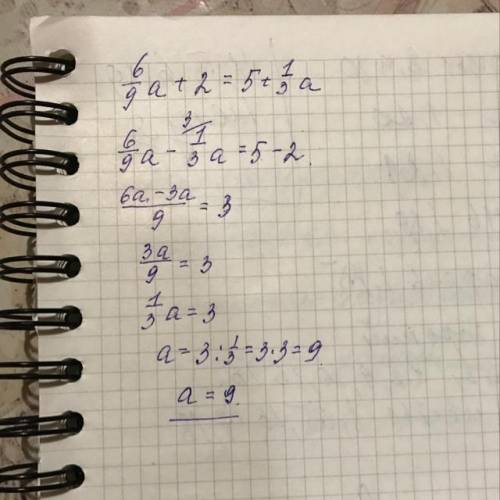 6/9 a + 2 = 5 + 1/3 a
6/9 a - 3/ 1/3 a = 5 - 2.
6a - 3a / 9 = 3
3a/9 = 3
1/3 a = 3
a = 3 : 1/3 = 3 · 3 = 9.
a = 9.